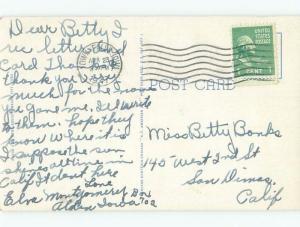 Dear Betty I
rec letter and
Card Thank
thank you very
much for the name
you gave me. Ill write
to them. hope they
know where it is
I suppose the sun
shines all time in
Calif It dont here
Love
Elva Montgomery Box
Alden Iowa 702
UNITED STATES
POSTAGE
1 CENT
POST CARD
Miss Betty Banks
145 West 2nd St
San Dimas,
Calif